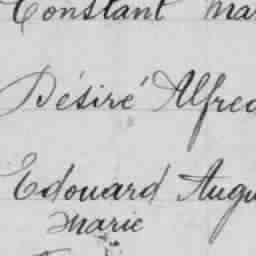 Constant Mar
Désiré Alfred
Edouard Augu
Marie